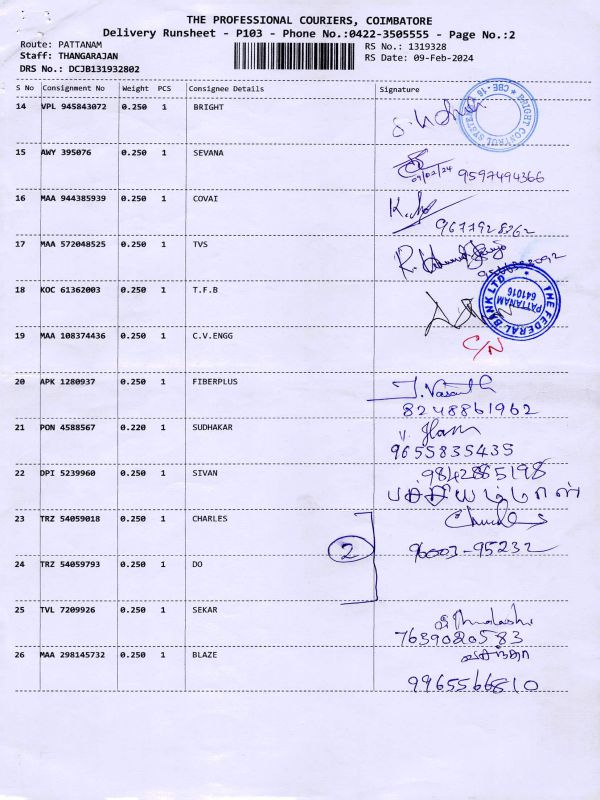 THE PROFESSIONAL COURIERS, COIMBATORE
Delivery Runsheet - P103 - Phone No.:0422-3505555 - Page No.:2
Route: PATTANAM RS No.: 1319328
Staff: THANGARAJAN RS Date: 09-Feb-2024
DRS No.: DCJB131932802
S No Consignment No Weight PCS Consignee Details Signature
14 VPL 945843072 0.250 1 BRIGHT
BRIGHT CONTROL SYSTEMS CBE-18
15 AWY 395076 0.250 1 SEVANA
09/02/24 9597494366
16 MAA 944385939 0.250 1 COVAI
9677928362
17 MAA 572048525 0.250 1 TVS
18 KOC 61362003 0.250 1 T.F.B
THE FEDERAL BANK LTD
PATTANAM
641016
19 MAA 108374436 0.250 1 C.V.ENGG
C/N
20 APK 1280937 0.250 1 FIBERPLUS
J. Vasanth
8248861962
21 PON 4588567 0.220 1 SUDHAKAR
9655835435
22 DPI 5239960 0.250 1 SIVAN
9842885198
23 TRZ 54059018 0.250 1 CHARLES
Charles
2
96003-95232
24 TRZ 54059793 0.250 1 DO
25 TVL 7209926 0.250 1 SEKAR
7639020583
26 MAA 298145732 0.250 1 BLAZE
9965566810